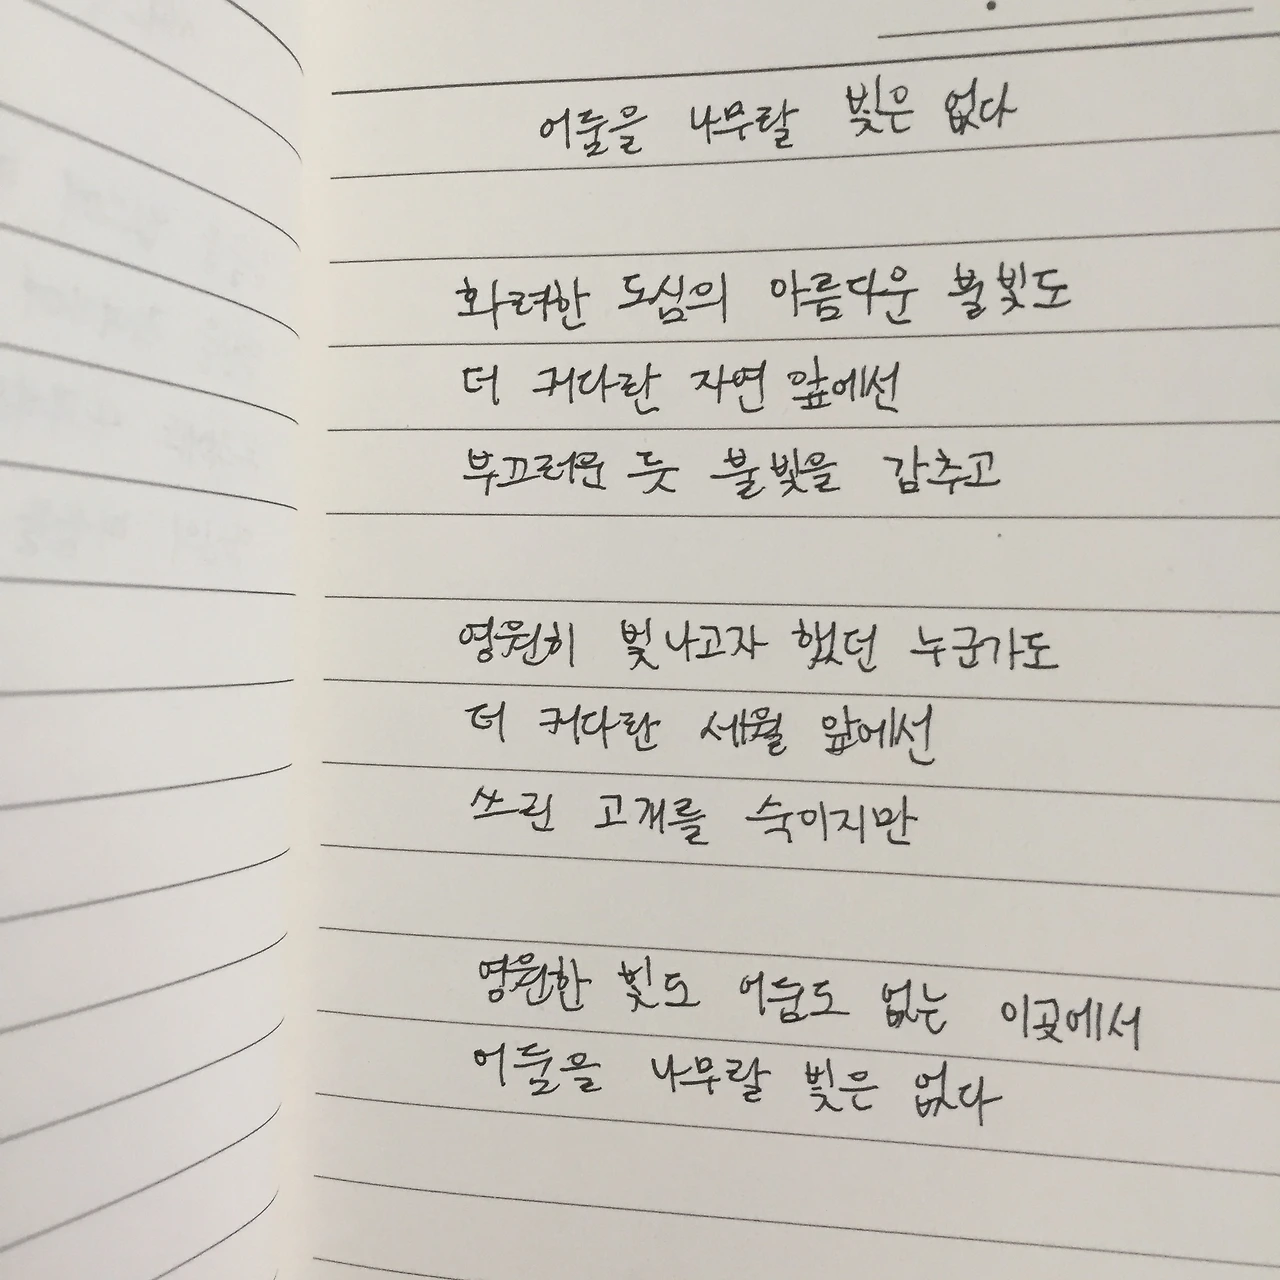 어둠을 나무랄 빛은 없다
화려한 도심의 아름다운 불빛도
더 커다란 자연 앞에선
부끄러운 듯 불빛을 감추고
영원히 빛나고자 했던 누군가도
더 커다란 세월 앞에선
쓰린 고개를 숙이지만
영원한 빛도 어둠도 없는 이곳에서
어둠을 나무랄 빛은 없다